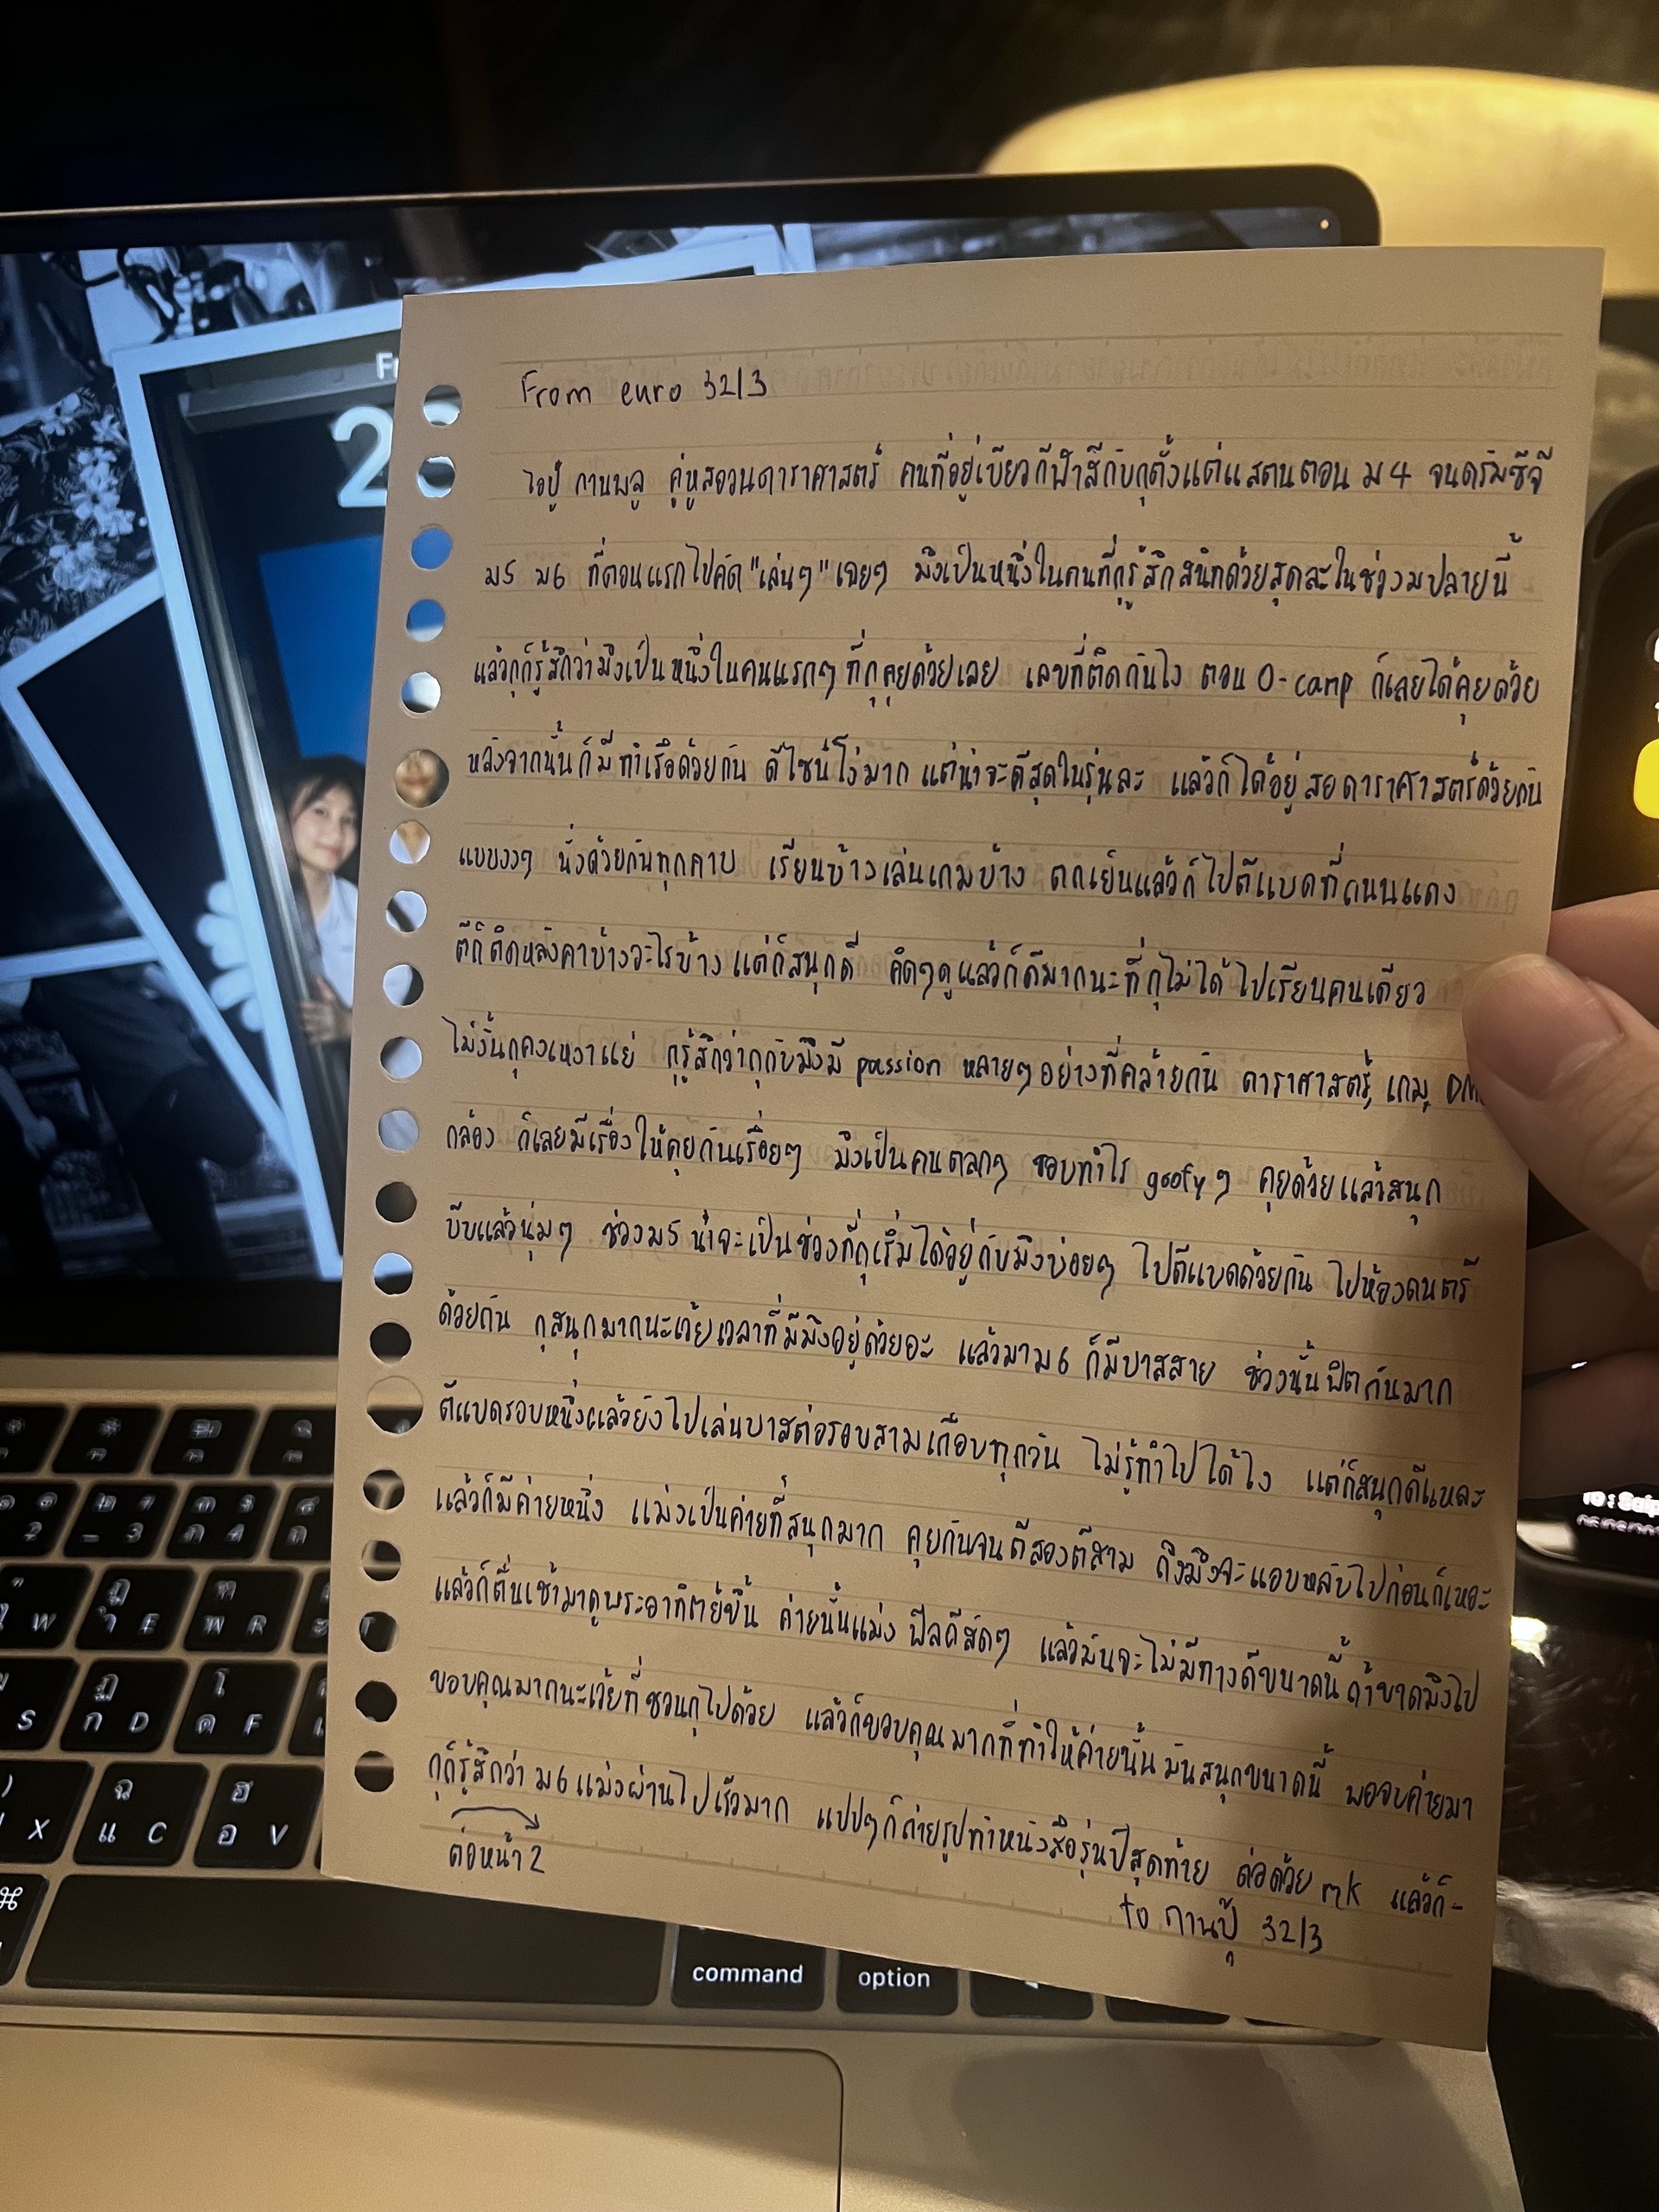 From euro 32/3
ไอปู๊ กานพลู คู่หูสอวนดาราศาสตร์ คนที่อยู่เขียวกีฬาสีกับกุตั้งแต่แสตนตอน ม4 จนดรัมซีจี
ม5 ม6 ที่ตอนแรกไปคัด "เล่นๆ" เฉยๆ มึงเป็นหนึ่งในคนที่กุรู้สึกสนิทด้วยสุดละในช่วงมปลายนี้
แล้วกุก็รู้สึกว่ามึงเป็นหนึ่งในคนแรกๆ ที่กุคุยด้วยเลย เลขที่ติดกันไง ตอน O-camp ก็เลยได้คุยด้วย
หลังจากนั้นก็มีทำเรือด้วยกัน ดีไซน์โง่มาก แต่น่าจะดีสุดในรุ่นละ แล้วก็ได้อยู่ สอดาราศาสตร์ด้วยกัน
แบบงงๆ นั่งด้วยกันทุกคาบ เรียนบ้างเล่นเกมบ้าง ตกเย็นแล้วก็ไปตีแบดที่ถนนแดง
ตีก็ติดหลังคาบ้างอะไรบ้าง แต่ก็สนุกดี คิดๆดูแล้วก็ดีมากนะที่กุไม่ได้ไปเรียนคนเดียว
ไม่งั้นกุคงเหงาแย่ กุรู้สึกว่ากุกับมึงมี passion หลายๆอย่างที่คล้ายกัน ดาราศาสตร์, เกม,
กล้อง ก็เลยมีเรื่องให้คุยกันเรื่อยๆ มึงเป็นคนตลกๆ ชอบทำไร goofy ๆ คุยด้วยแล้วสนุก
บีบแล้วนุ่มๆ ช่วงม5 น่าจะเป็นช่วงที่กุเริ่มได้อยู่กับมึงบ่อยๆ ไปตีแบดด้วยกัน ไปห้องดนตรี
ด้วยกัน กุสนุกมากนะเว้ยเวลาที่มีมึงอยู่ด้วยอะ แล้วมาม6 ก็มีบาสสาย ช่วงนั้นฟิตกันมาก
ตีแบดรอบหนึ่งแล้วยังไปเล่นบาสต่อรอบสามเกือบทุกวัน ไม่รู้ทำไปได้ไง แต่ก็สนุกดีแหละ
แล้วก็มีค่ายหนึ่ง แม่งเป็นค่ายที่สนุกมาก คุยกันจนตีสองตีสาม ถึงมึงจะแอบหลับไปก่อนก็เหอะ
แล้วก็ตื่นเช้ามาดูพระอาทิตย์ขึ้น ค่ายนั้นแม่ง ฟีลดีสัดๆ แล้วมันจะไม่มีทางดีขนาดนี้ ถ้าขาดมึงไป
ขอบคุณมากนะเว้ยที่ชวนกุไปด้วย แล้วก็ขอบคุณมากที่ทำให้ค่ายนั้นมันสนุกขนาดนี้ พอจบค่ายมา
กุก็รู้สึกว่า ม6 แม่งผ่านไปเร็วมาก แปปๆก็ถ่ายรูปทำหนังสือรุ่นปีสุดท้าย ต่อด้วย mk แล้วก็-
ต่อหน้า 2
to กานปุ๊ 32/3
command
option